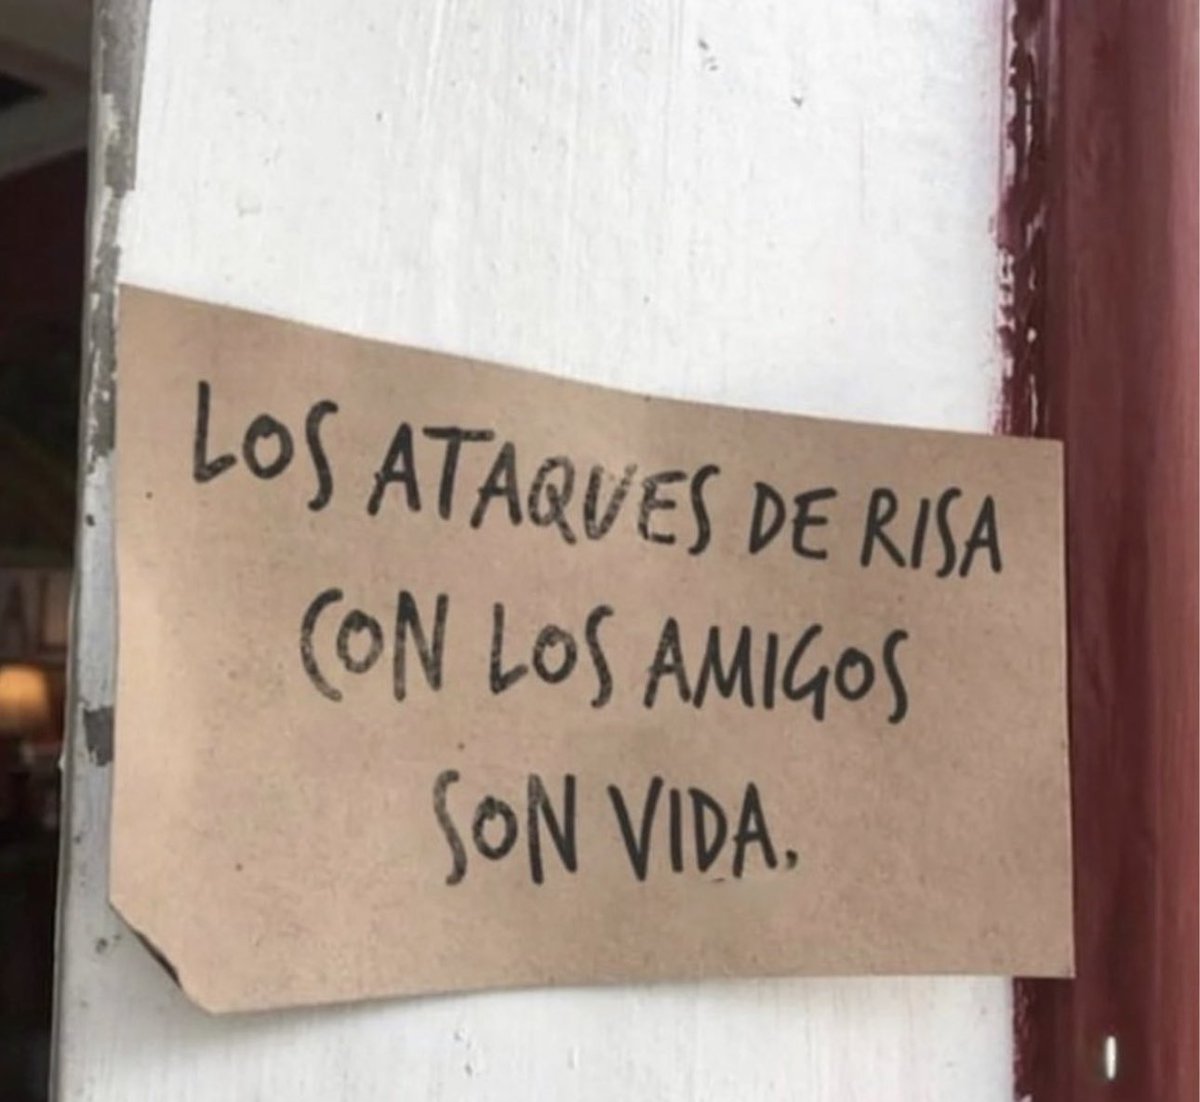 LOS ATAQUES DE RISA
CON LOS AMIGOS
SON VIDA.